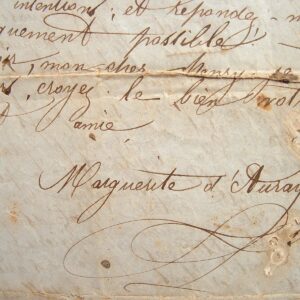 intentions, et répondez-
quement possible!
mon cher
croyez le bien
amie
Marguerite d'Auray